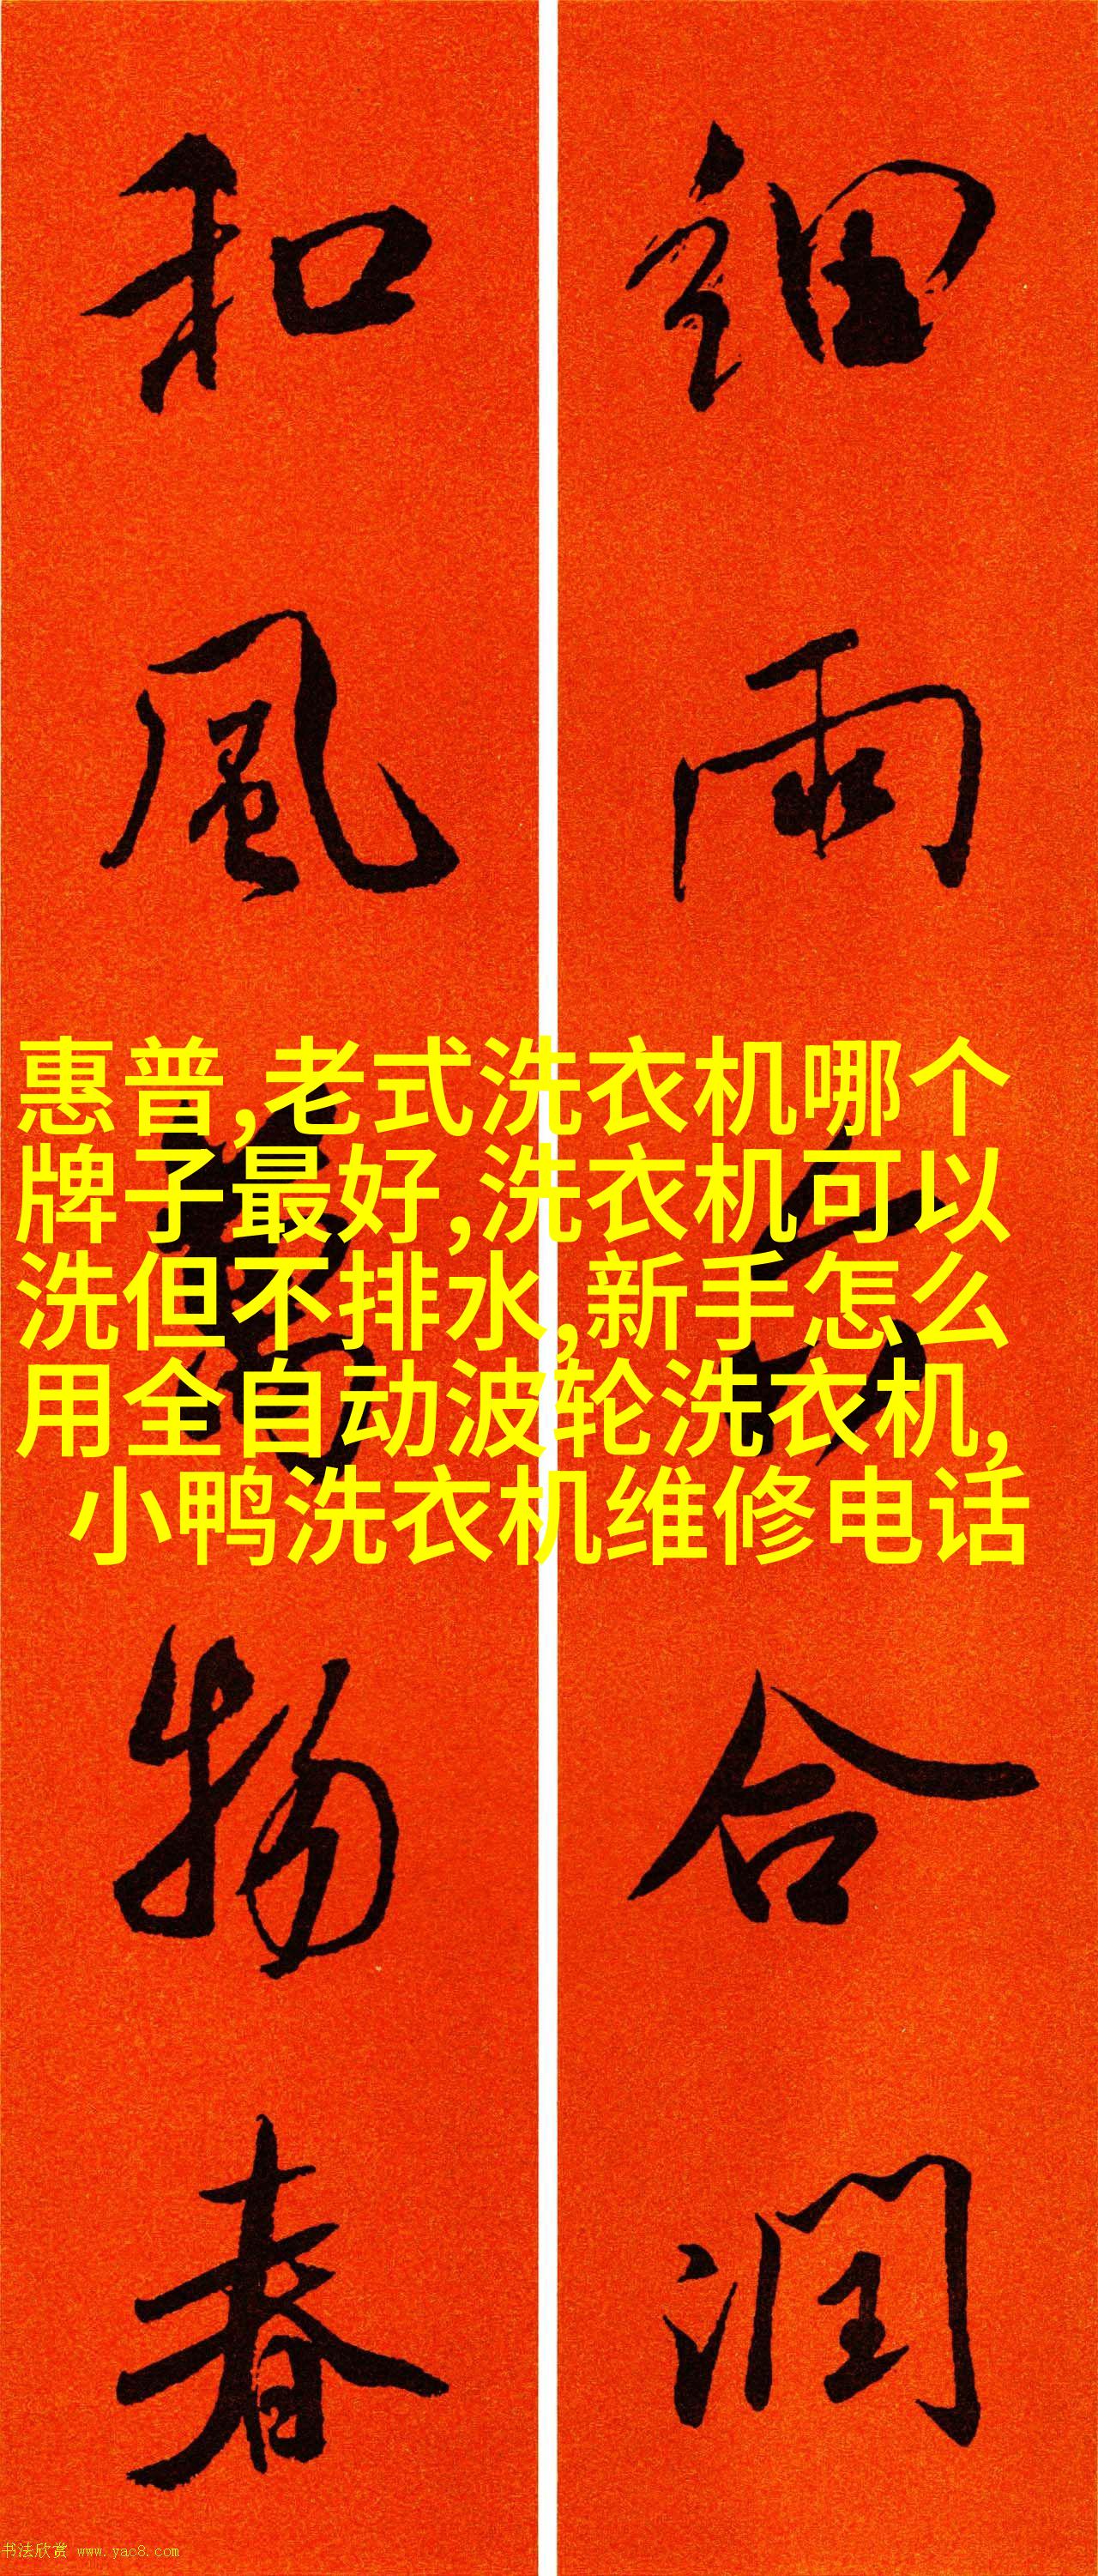 细雨百合润
和風萬物春
惠普,老式洗衣机哪个
牌子最好,洗衣机可以
洗但不排水,新手怎么
用全自动波轮洗衣机,
小鸭洗衣机维修电话
书法欣赏 www.yac8.com